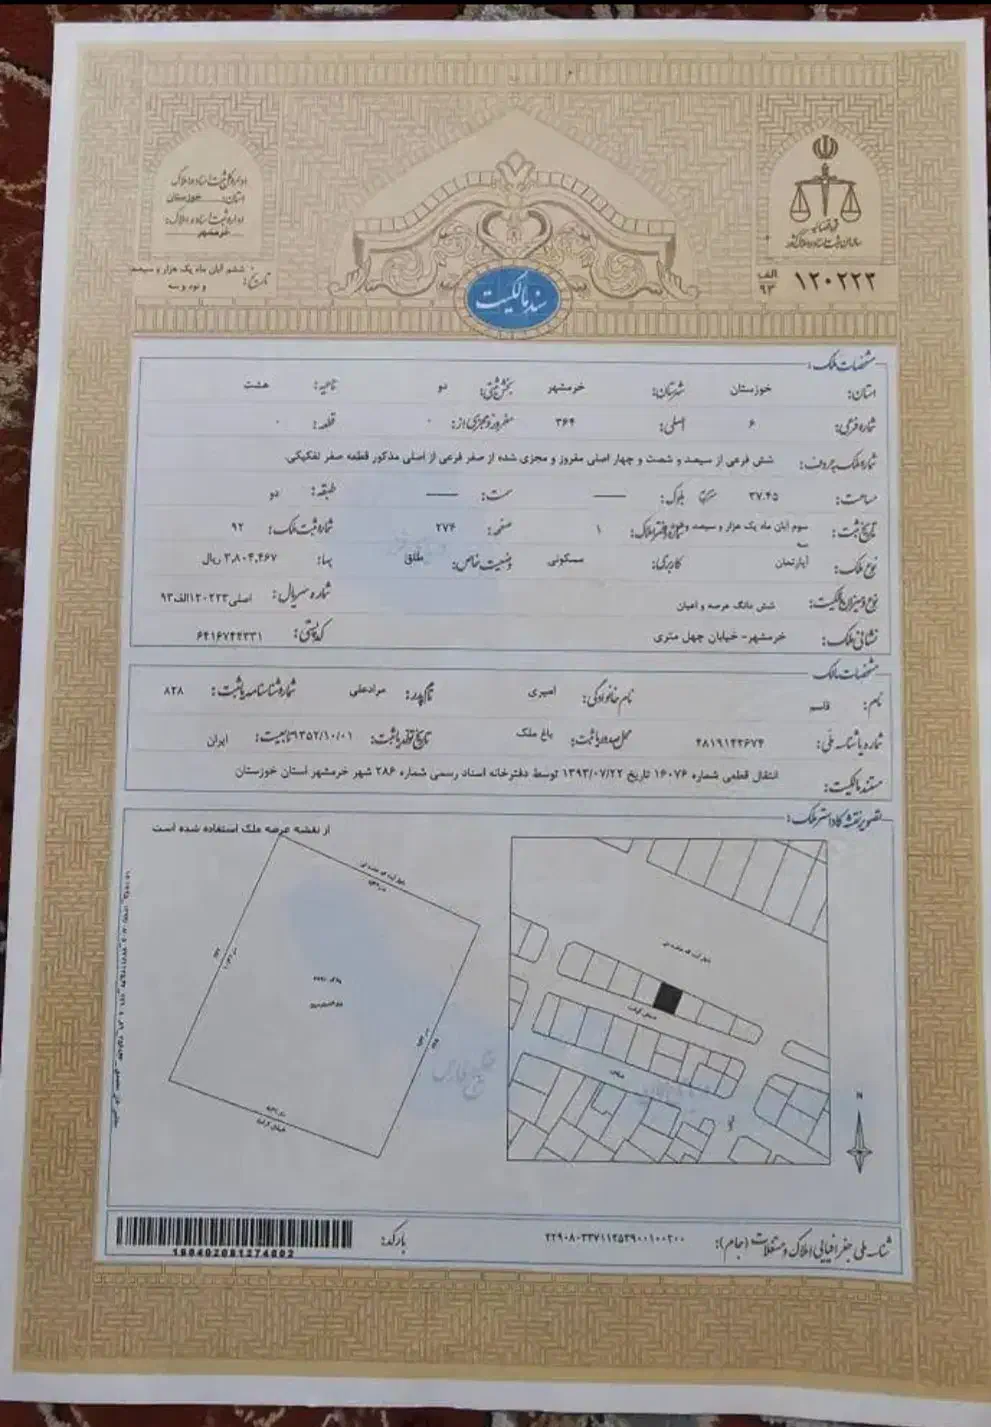 اداره کل ثبت اسناد و املاک
استان: خوزستان
اداره ثبت اسناد و املاک:
خرمشهر
تاریخ: ششم آبان ماه یک هزار و سیصد
و نود و سه
قوه قضائیه
سازمان ثبت اسناد و املاک کشور
۱۲۰۲۲۳ الف ۹۳
سند مالکیت
مشخصات ملک:
استان: خوزستان شهرستان: خرمشهر بخش ثبتی: دو ناحیه: هشت
شماره فرعی: ۶ اصلی: ۳۶۴ مفروز و مجزی از: ۰ قطعه: ۰
شماره ملک به حروف: شش فرعی از سیصد و شصت و چهار اصلی مفروز و مجزی شده از صفر فرعی از اصلی مذکور قطعه صفر تفکیکی.
مساحت: ۳۷.۴۵ مترمربع بلوک: —— سمت: —— طبقه: دو
تاریخ ثبت: سوم آبان ماه یک هزار و سیصد و شماره دفتر املاک: ۱ صفحه: ۲۷۴ شماره ثبت ملک: ۹۲
نوع ملک: آپارتمان کاربری: مسکونی وضعیت خاص: طلق بهاء: ۳,۸۰۴,۴۶۷ ریال
نوع و میزان مالکیت: شش دانگ عرصه و اعیان شماره سریال: اصلی۱۲۰۲۲۳الف۹۳
نشانی ملک: خرمشهر- خیابان چهل متری کدپستی: ۶۴۱۶۷۴۴۳۳۱
مشخصات مالک
نام: قاسم نام خانوادگی: امیری نام پدر: مرادعلی شماره شناسنامه یا ثبت: ۸۲۸
شماره یا شناسه ملی: ۴۸۱۹۱۴۲۶۷۴ محل صدور یا ثبت: باغ ملک تاریخ تولد یا ثبت: ۱۳۵۲/۱۰/۰۱ تابعیت: ایران
مستند مالکیت: انتقال قطعی شماره ۱۶۰۷۶ تاریخ ۱۳۹۳/۰۷/۲۲ توسط دفترخانه اسناد رسمی شماره ۲۸۶ شهر خرمشهر استان خوزستان
تصویر نقشه کاداستر ملک:
از نقشه عرصه ملک استفاده شده است
N
شناسه ملی جغرافیایی املاک و مستغلات (جام): ۲۲۹۰۸۰۳۳۷۱۱۲۵۲۹۰۰۱۰۰۲۰۰
بارکد:
188402081274802